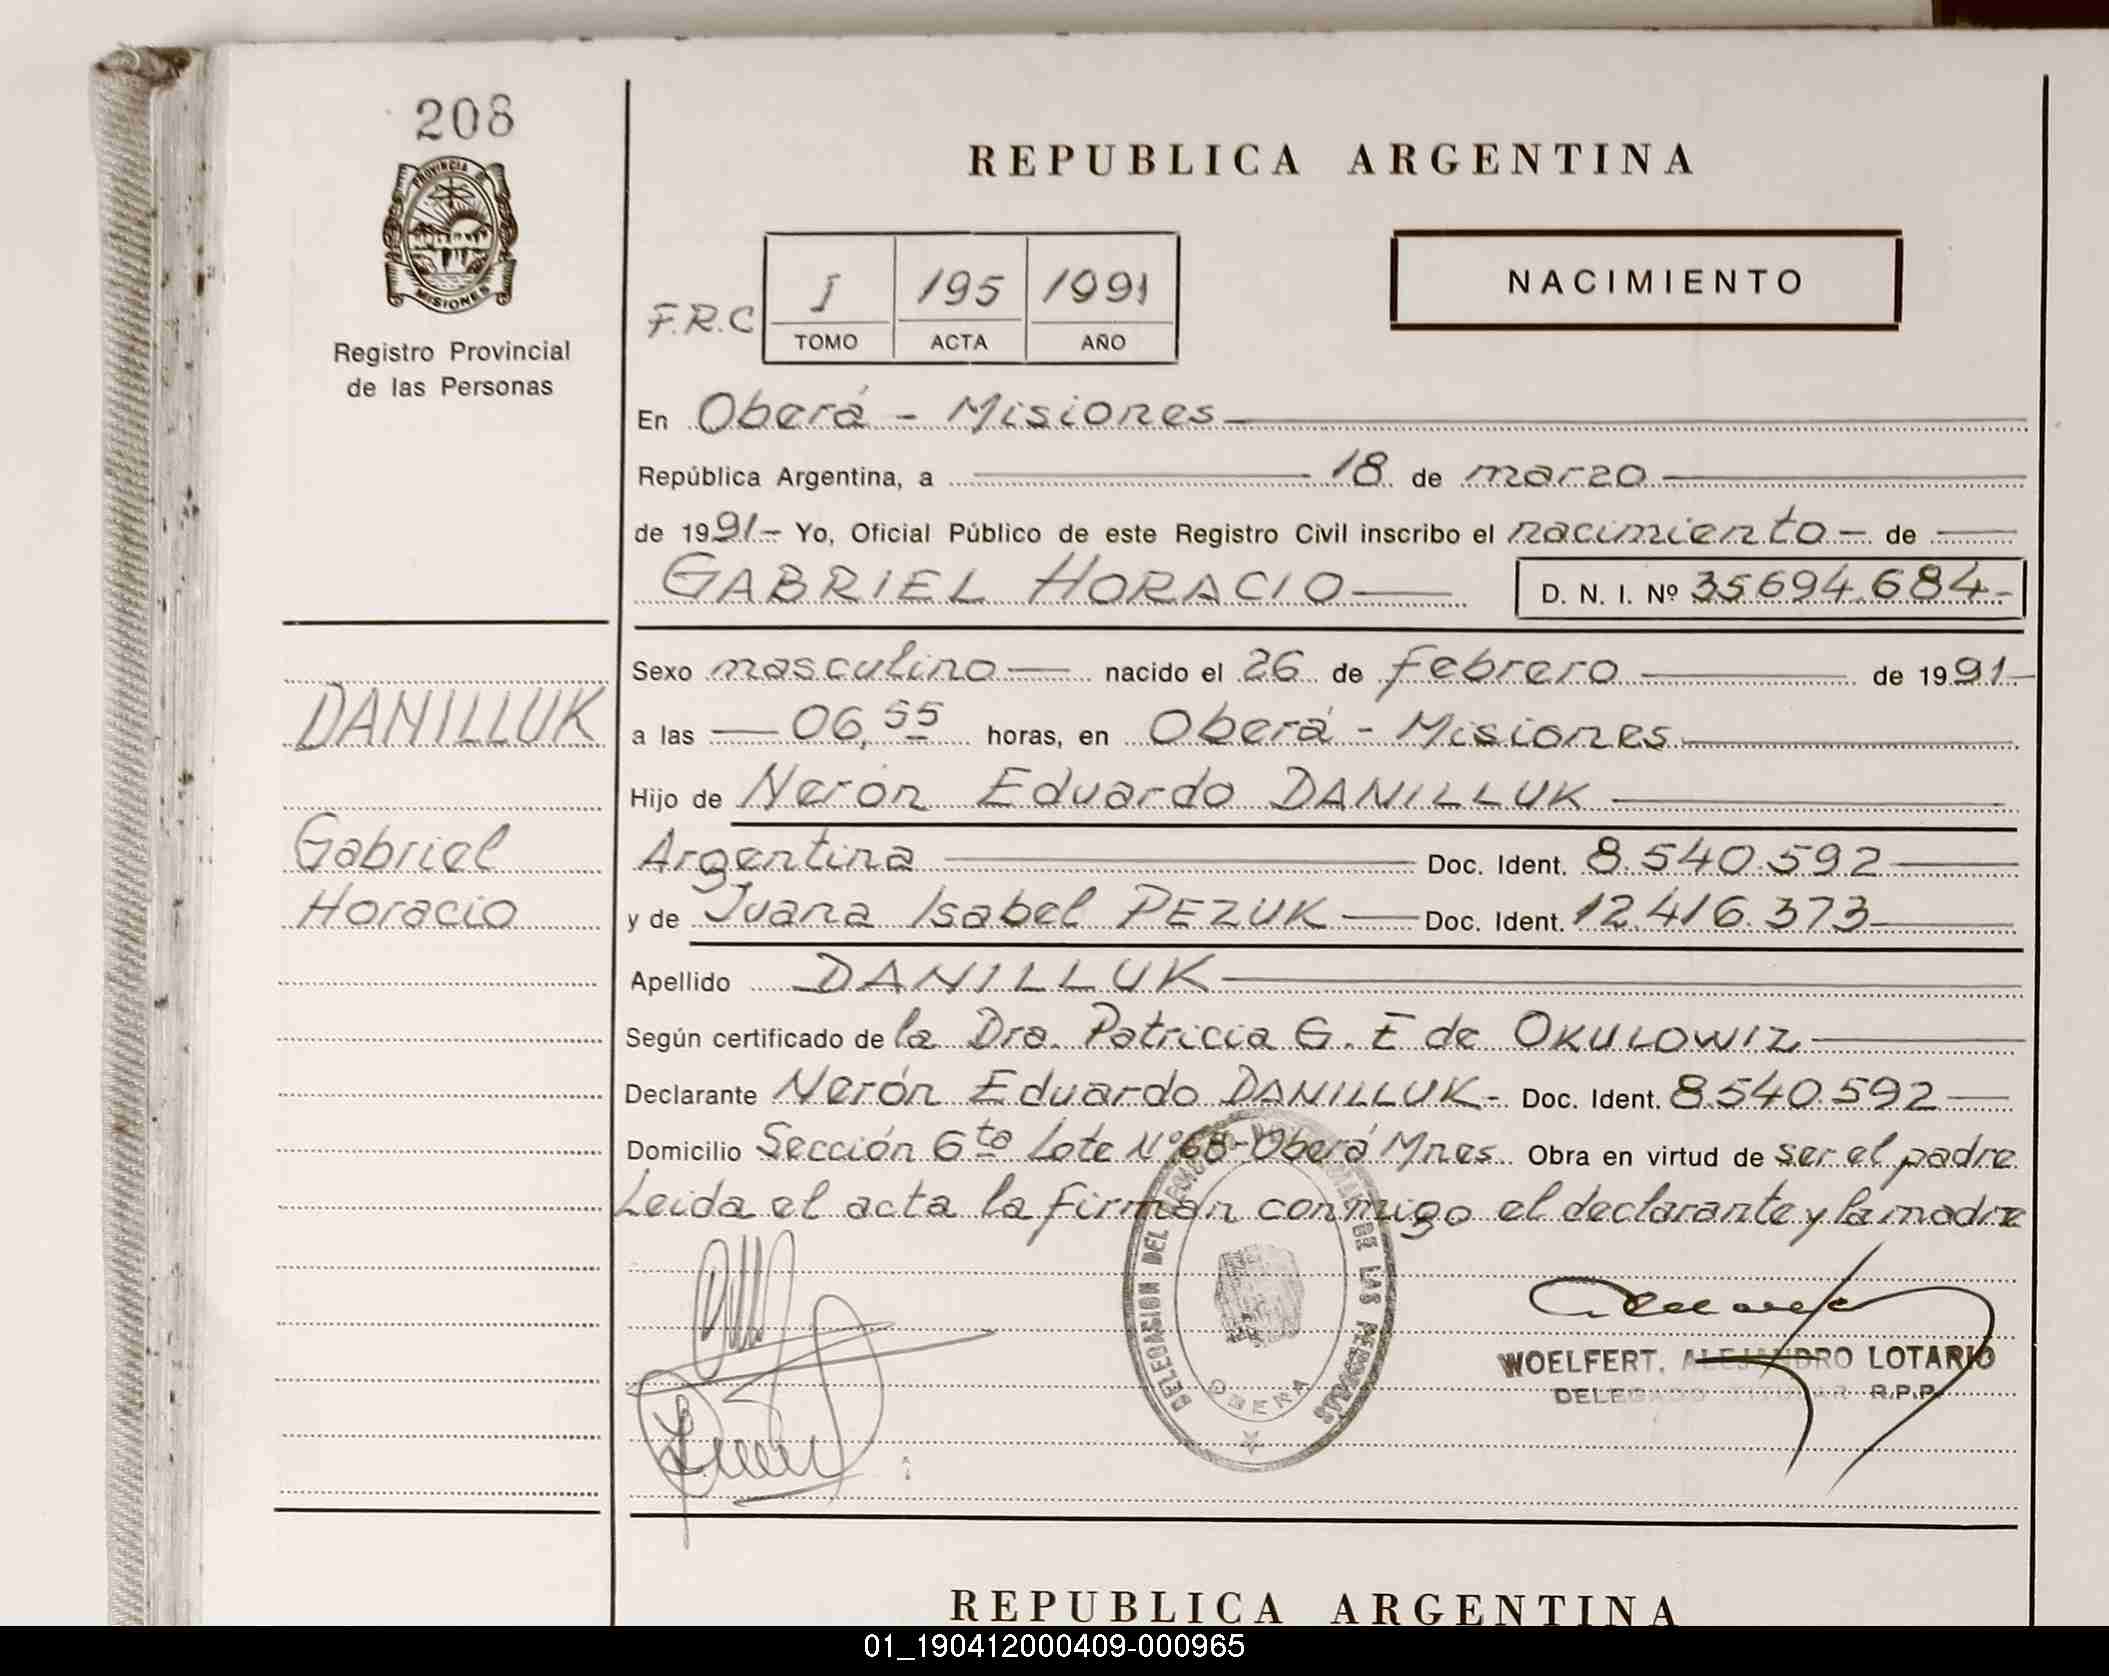 208
PROVINCIA DE
MISIONES
Registro Provincial
de las Personas
REPUBLICA ARGENTINA
NACIMIENTO
F.R.C
I 195 1991
TOMO ACTA AÑO
En Oberá - Misiones
República Argentina, a 18 de marzo
de 1991- Yo, Oficial Público de este Registro Civil inscribo el nacimiento - de
GABRIEL HORACIO D. N. I. Nº 35694.684-
Sexo masculino nacido el 26 de febrero de 1991-
DANILLUK
a las 06,55 horas, en Oberá - Misiones
Hijo de Nerón Eduardo DANILLUK
Gabriel
Horacio
Argentina Doc. Ident. 8.540.592
y de Juana Isabel PEZUK Doc. Ident. 12.416.373
Apellido DANILLUK
Según certificado de la Dra. Patricia G. E de OKULOWIZ
Declarante Nerón Eduardo DANILLUK- Doc. Ident. 8.540.592
Domicilio Sección 6ta Lote Nº 68-Oberá Mnes. Obra en virtud de ser el padre
Leida el acta la firman conmigo el declarante y la madre
DELEGACION DEL DE LAS PERSONAS
OBERA
WOELFERT, ALEJANDRO LOTARIO
DELEGADO TITULAR R.P.P.
REPUBLICA ARGENTINA
01_190412000409-000965